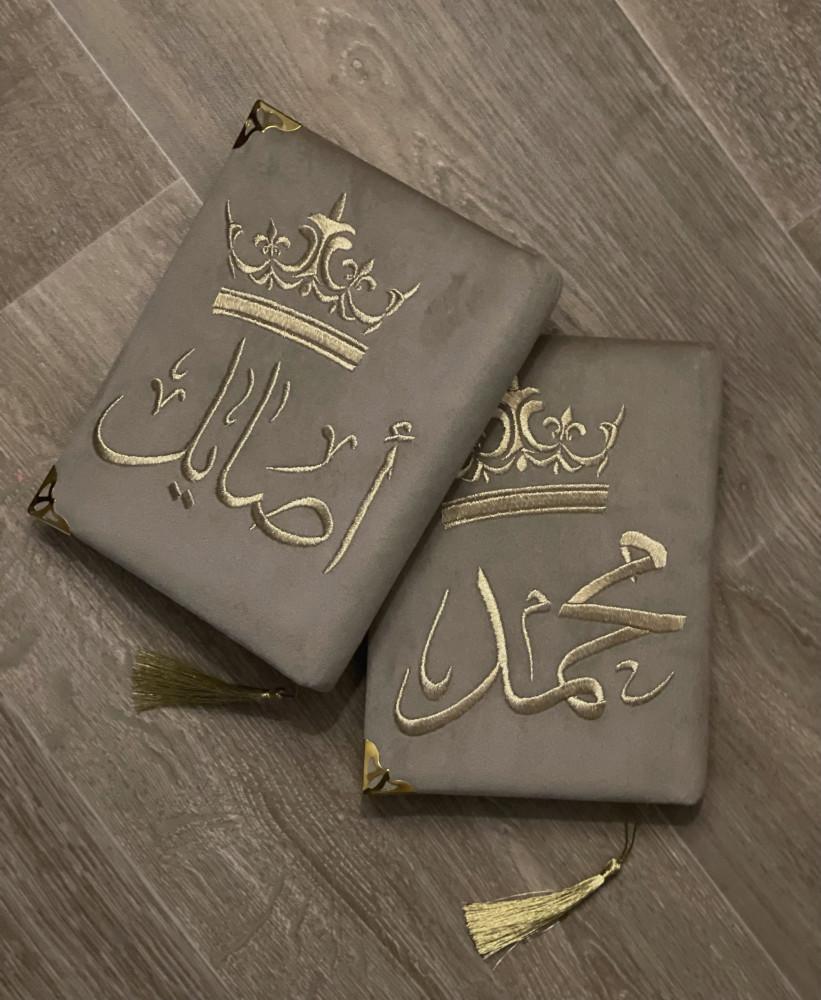 أصايل
محمد